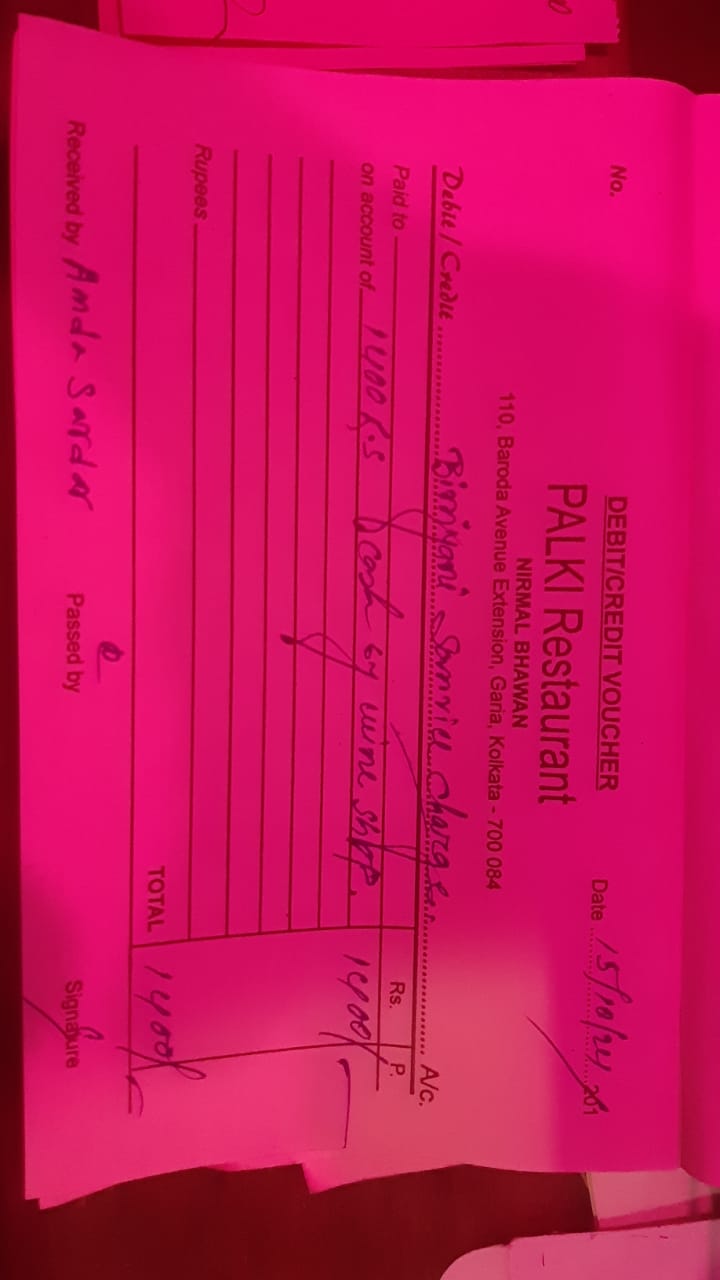 DEBIT/CREDIT VOUCHER
No.
Date 15/10/24 201
PALKI Restaurant
NIRMAL BHAWAN
110, Baroda Avenue Extension, Garia, Kolkata - 700 084
Debit / Credit Birriyani Sarvice charge. A/c.
Paid to Rs. P.
on account of 1400 R.s cash by wine shop. 1400/-
Rupees
TOTAL 1400/-
Received by Amda Sardar Passed by Signature